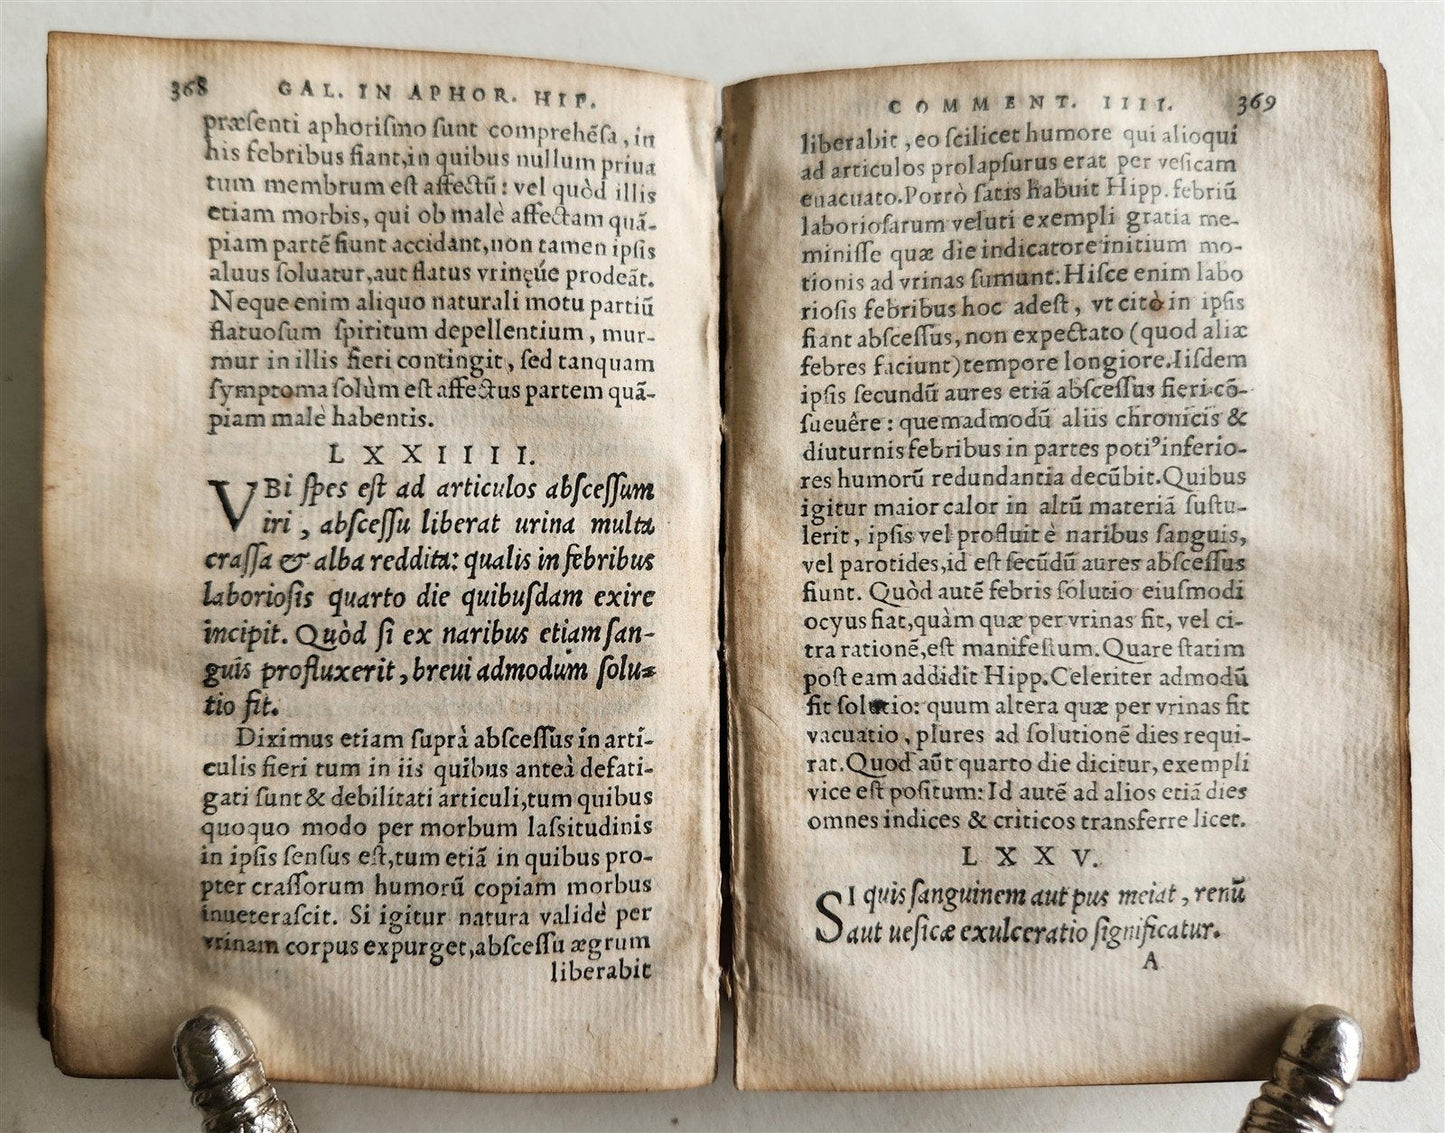 368 GAL. IN APHOR. HIP.
præſenti aphoriſmo ſunt comprehẽſa, in
his febribus fiant, in quibus nullum priua
tum membrum eſt affectũ: vel quòd illis
etiam morbis, qui ob malè affectam quã-
piam partẽ fiunt accidant, non tamen ipſis
aluus ſoluatur, aut flatus vrinęúe prodeãt.
Neque enim aliquo naturali motu partiũ
flatuoſum ſpiritum depellentium, mur-
mur in illis fieri contingit, ſed tanquam
ſymptoma ſolùm eſt affectus partem quã-
piam malè habentis.
LXXIIII.
VBi ſpes eſt ad articulos abſceſſum
iri, abſceſſu liberat urina multa
craſſa & alba reddita: qualis in febribus
laborioſis quarto die quibuſdam exire
incipit. Quòd ſi ex naribus etiam ſan-
guis profluxerit, breui admodum ſolu-
tio fit.
Diximus etiam ſuprà abſceſſus in arti-
culis fieri tum in iis quibus anteà defati-
gati ſunt & debilitati articuli, tum quibus
quoquo modo per morbum laſsitudinis
in ipſis ſenſus eſt, tum etiã in quibus pro-
pter craſſorum humorũ copiam morbus
inueteraſcit. Si igitur natura validè per
vrinam corpus expurget, abſceſſu ægrum
liberabit
COMMENT. IIII. 369
liberabit, eo ſcilicet humore qui alioqui
ad articulos prolapſurus erat per veſicam
euacuato. Porrò ſatis habuit Hipp. febriũ
laborioſarum veluti exempli gratia me-
miniſſe quæ die indicatore initium mo-
tionis ad vrinas ſumunt. Hiſce enim labo
rioſis febribus hoc adeſt, vt citò in ipſis
fiant abſceſſus, non expectato (quod aliæ
febres faciunt) tempore longiore. Iiſdem
ipſis ſecundũ aures etiã abſceſſus fieri cõ-
ſueuêre: quemadmodũ aliis chronicis &
diuturnis febribus in partes poti⁹ inferio-
res humorũ redundantia decũbit. Quibus
igitur maior calor in altũ materiã ſuſtu-
lerit, ipſis vel profluit è naribus ſanguis,
vel parotides, id eſt ſecũdũ aures abſceſſus
fiunt. Quòd autẽ febris ſolutio eiuſmodi
ocyus fiat, quàm quæ per vrinas fit, vel ci-
tra rationẽ, eſt manifeſtum. Quare ſtatim
poſt eam addidit Hipp. Celeriter admodũ
fit ſolutio: quum altera quæ per vrinas fit
vacuatio, plures ad ſolutionẽ dies requi-
rat. Quod aũt quarto die dicitur, exempli
vice eſt poſitum: Id autẽ ad alios etiã dies
omnes indices & criticos transferre licet.
LXXV.
SI quis ſanguinem aut pus meiat, renũ
aut ueſicæ exulceratio ſignificatur.
A